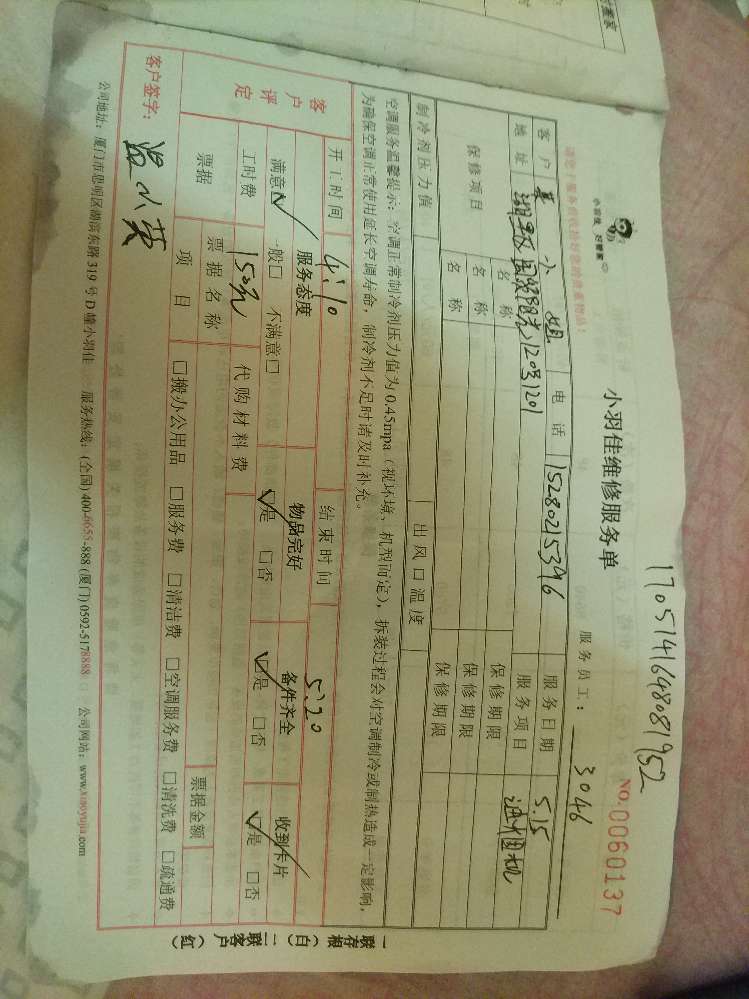 1705141648081952
小羽佳 好管家
小羽佳维修服务单
NO.0060137
服务员工: 3046
请您于服务前收拾好您的贵重物品!
客户 小姐 电话 15280215396 服务日期 5.15
地址 国贸阳光120号1201 服务项目
保修项目 名称 保修期限
名称 保修期限
名称 保修期限
制冷剂压力值 出风口温度
空调服务温馨提示:空调正常制冷剂压力值为0.45mpa(视环境、机型而定),拆装过程会对空调制冷或制热造成一定影响,
为确保空调正常使用延长空调寿命,制冷剂不足时请及时补充。
开工时间 4:10 结束时间 5:20
客户评定 服务态度 物品完好 备件齐全 收到卡片
满意☑ 一般□ 不满意□ ☑是 □否 ☑是 □否 ☑是 □否
工时费 150元 代购材料费
票据 票据名称 票据金额
项目 □搬办公用品 □服务费 □清洁费 □空调服务费 □清洗费 □疏通费
客户签字: 小英
公司地址:厦门市思明区湖滨东路319号D幢小羽佳 服务热线:(全国)400-6655-888 (厦门)0592-5178888 公司网站:www.xiaoyujia.com
一联存根(白) 二联客户(红)